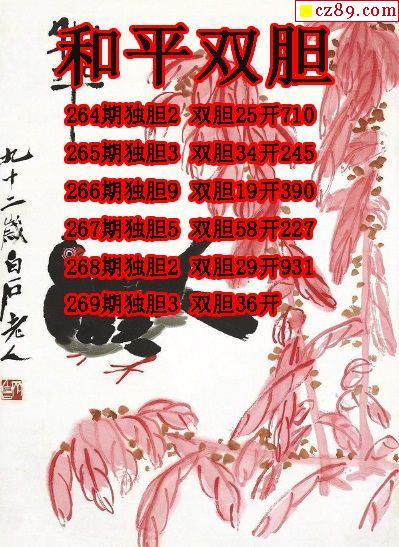 cz89.com
和平双胆
264期独胆2 双胆25开710
265期独胆3 双胆34开245
266期独胆9 双胆19开390
267期独胆5 双胆58开227
268期独胆2 双胆29开931
269期独胆3 双胆36开
九十二岁白石老人